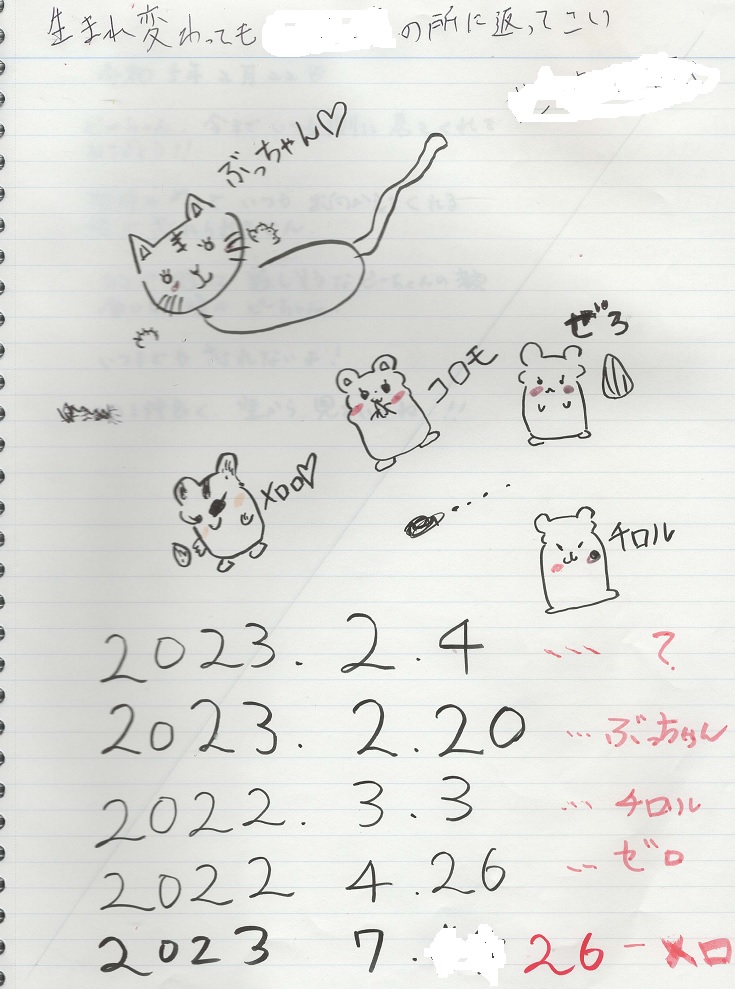 生まれ変わっても の所に返ってこい
ぶっちゃん♡
ぜろ
コロモ
メロロ♡
チロル
2023.2.4 ... ?
2023.2.20 ...ぶっちゃん
2022.3.3 ...チロル
2022 4.26 ...ゼロ
2023 7.26-メロ